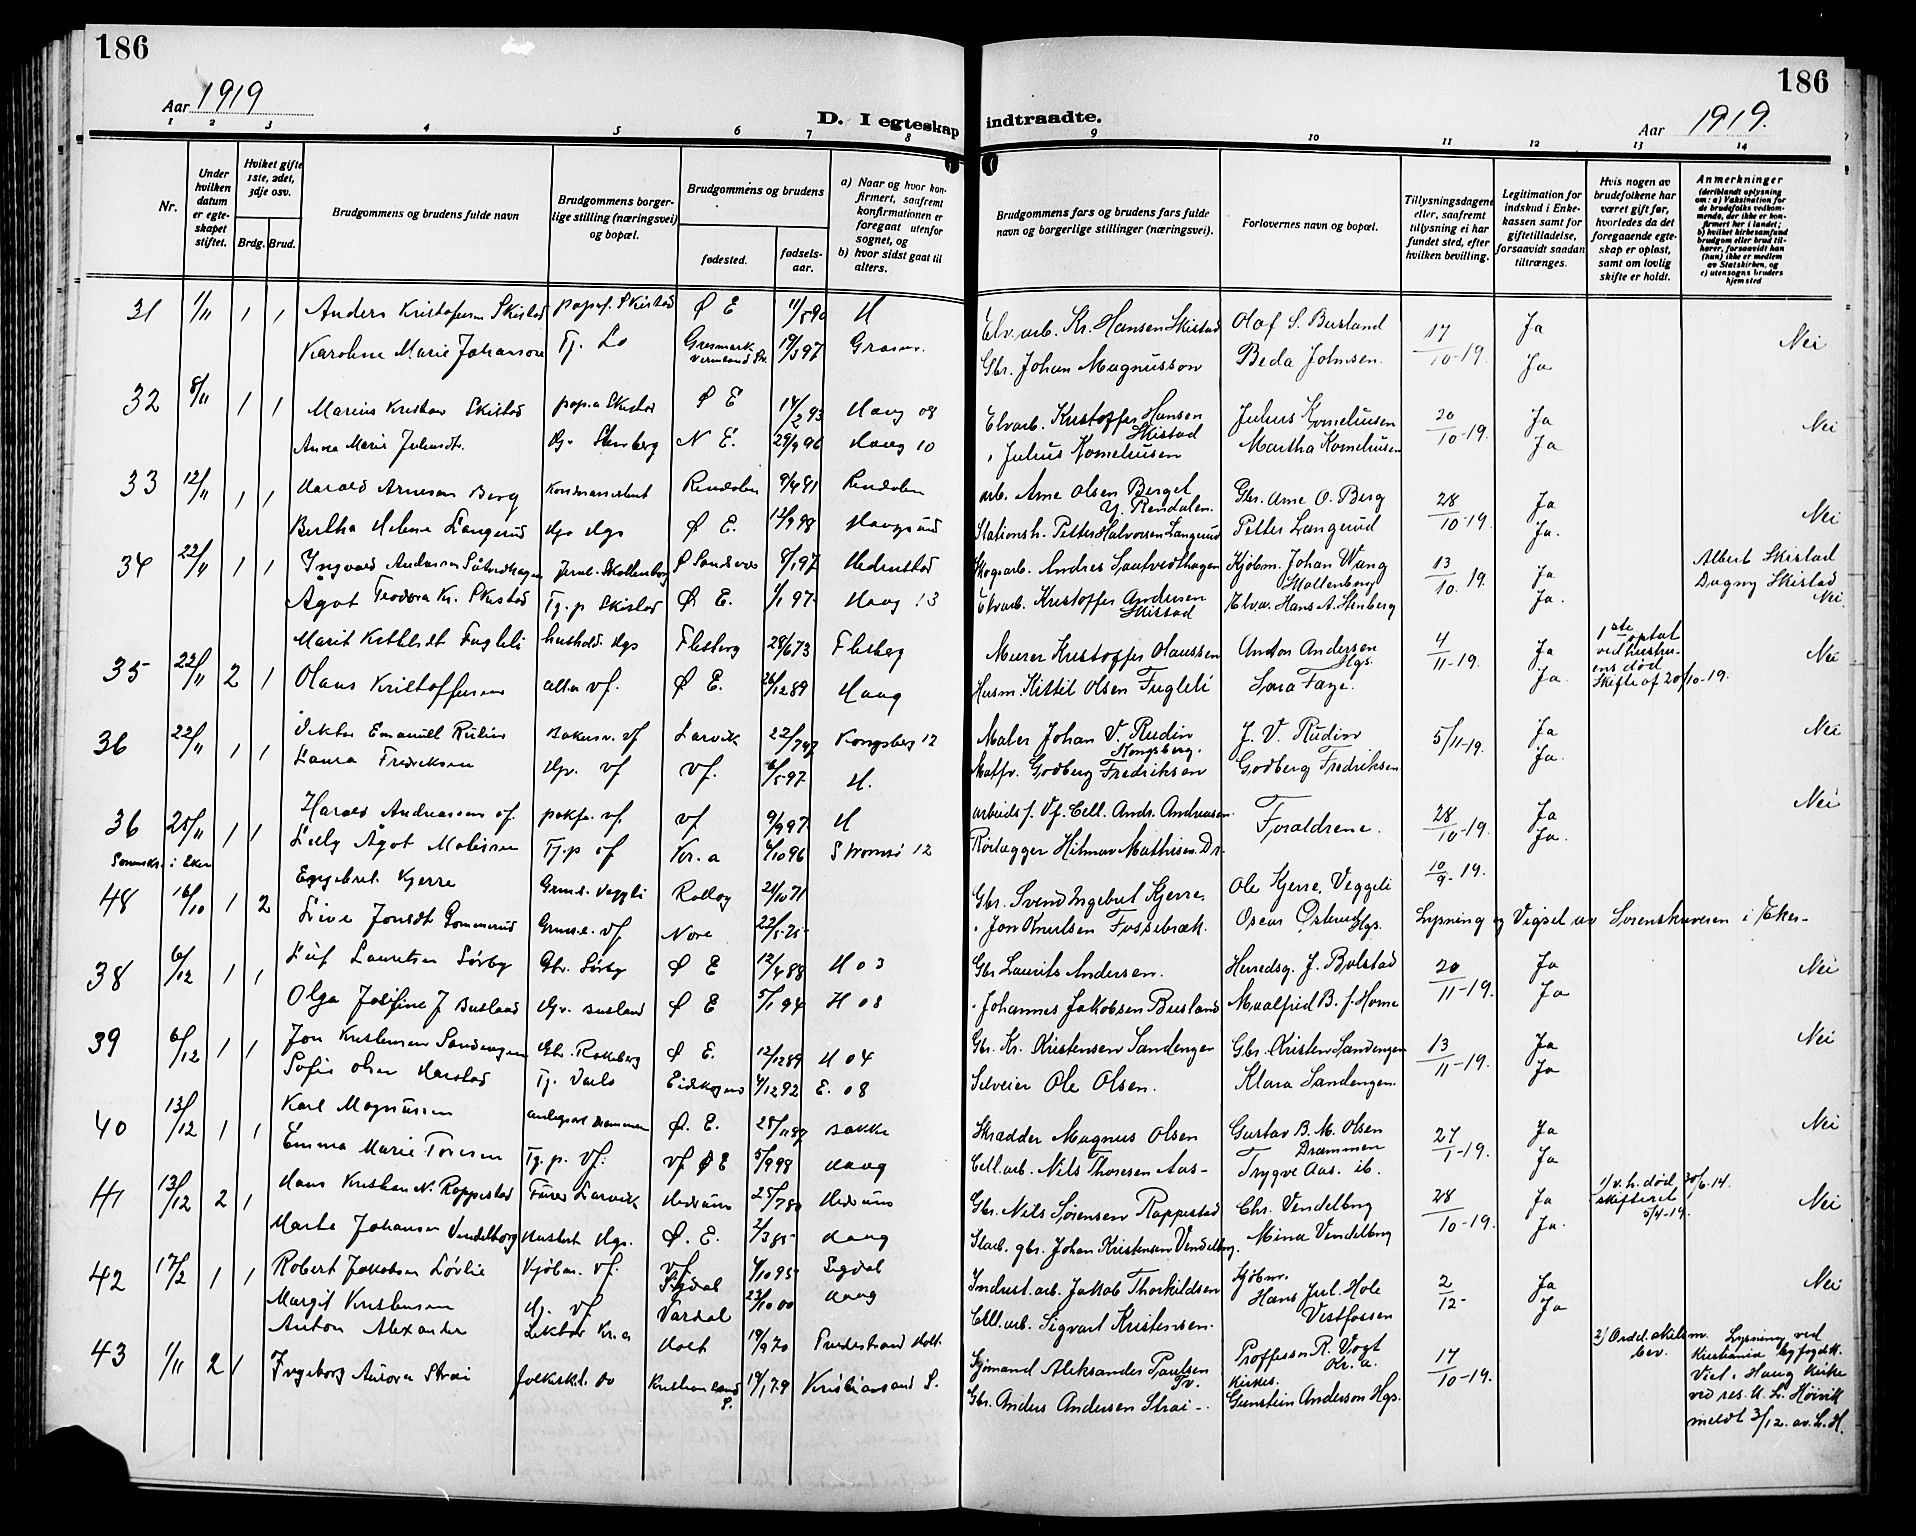 186
Aar 1919
D. I egteskap
1 2 3 4 5 6 7 8
Nr.
Under hvilken datum er egteskapet stiftet.
Hvilket gifte 1ste, 2det, 3dje osv.
Brdg. Brud.
Brudgommens og brudens fulde navn
Brudgommens borgerlige stilling (næringsvei) og bopæl.
Brudgommens og brudens
fødested.
fødselsaar.
a) Naar og hvor konfirmert, saafremt konfirmationen er foregaat utenfor sognet, og
b) hvor sidst gaat til alters.
31 1/11 1 1 Anders Kristofersen Skistad papaf. Skistad Ø E 11/5 90 H
Karoline Marie Johanson Tj. Do Gresmark Vermland Sv. 19/3 97 Grasm.
32 8/11 1 1 Marius Kristian Skistad pap.a Skistad Ø E 14/2 93 Haug 08
Anna Marie Juliusdt. Hj. Stenberg N E. 29/9 96 Haug 10
33 12/11 1 1 Harald Arnesen Berg Rendalen 9/4 91 Rendalen
Bertha Helene Langerud Hj. Hgs Ø E. 12/9 98 Haugsund
34 22/11 1 1 Ingvald Andersen Jernb. Skollenborg Ø Sandsver 8/1 97 Hedenstad
Ågot Teodora Kr. Skistad Tj. p Skistad Ø E. 1/1 97 Haug 13
Marit Kittilsdt Fugleli hushold. Hgs Flesberg 28/6 73 Flesberg
35 22/11 2 1 Olaus Kristoffersen vf. Ø E. 26/12 89 Haug
36 22/11 1 1 Viktor Emanuel Rudin Bakersv. vf Larvik 22/7 97 Kongsberg 12
Laura Fredriksen Hj. vf vf. 6/5 97 H.
36 25/11 1 1 Harald Andreassen vf. pakf. vf. vf 9/9 97 H
Lilly Ågot Matisen Tj. p vf Kr.a 4/10 96 Strømsø 12
Sorenskr. i Eker
48 16/10 1 2 Eggebret Kjerre Grmd. Veggli Rollag 21/10 71
Live Jonsdt Gommerud Grmd.e. vf. Nore 22/5 75
38 6/12 1 1 Leif Lauritsen Sørby Gbr. Sørby Ø E 12/4 88 H 03
Olga Josefine J Busland Hj. Busland Ø E 5/1 94 H 08
39 6/12 1 1 Jon Kristensen Sandengen Gbr. Rokeberg Ø E. 12/12 89 H 04
Sofie Olsen Harstad Tj. Varlo Eidskogen 4/12 92 E. 08
40 13/12 1 1 Karl Magnussen Drammen Ø. E. 28/11 87 Bakke
Emma Marie Toresen Tj. p. vf. vf Ø E 5/9 98 Haug
41 13/12 2 1 Hans Kristian N. Roppestad Larvik Hedrum 25/7 80 Hedrum
Marta Johansen Vendelborg Husbest Hgs. Ø. E. 2/3 85 Haug
42 17/12 1 1 Robert Jakobsen Løvlie Kjøbm. vf. vf. Sigdal 4/10 95 Sigdal
Margit Kristensen Hj. vf Vardal 23/10 00 Haug
43 1/11 2 1 Anton Alexander Lektor Kr.a Holt 19/9 70 Tvedestrand Holt.
Ingeborg Aurora Strai folkeskl. do Kristiansand S. 19/1 79 Kristiansand S.
186
indtraadte.
Aar 1919.
9 10 11 12 13 14
Brudgommens fars og brudens fars fulde navn og borgerlige stillinger (næringsvei).
Forlovernes navn og bopæl.
Tillysningsdagene eller, saafremt tillysning ei har fundet sted, efter hvilken bevilling.
Legitimation for indskud i Enkekassen samt for giftetilladelse, forsaavidt saadan tiltrænges.
Hvis nogen av brudefolkene har været gift før, hvorledes da det foregaaende egteskap er opløst, samt om lovlig skifte er holdt.
Anmerkninger
(deriblandt oplysning om: a) Vaksination for de brudefolks vedkommende, der ikke er konfirmert her i landet; b) hvilket kirkesamfund brudgom eller brud tilhører, forsaavidt han (hun) ikke er medlem av Statskirken, og c) utensogns bruders hjemsted
Elv.arb. Kr. Hansen Skistad Olaf S. Busland 17/10-19. Ja
Gbr. Johan Magnusson Beda Johnsen. Ja Nei
Elvarb. Kristoffer Hansen Skistad Julius Korneliusen 20/10-19. Ja Nei
" Julius Korneliusen Martha Korneliusen Ja
arb. Arne Olsen Berget Y. Rendalen. Gbr. Arne O. Berg 28/10-19. Ja
Stationsh. Petter Halvorsen Langerud Petter Langerud Ja. Nei
Skogsarb. Andres Sautvedthagen Kjøbm. Johan Wang Skollenborg 13/10.19. Ja Albert Skistad
Elvarb. Kristoffer Andersen Skistad Elva. Hans A. Stenberg Ja. Dagny Skistad Nei.
Murer Kristoffer Olaussen Anton Andersen Hgs. 4/11-19. Ja 1ste opløst ved hustruens død Nei
Husm. Kittil Olsen Fugleli Sara Faye. Ja. Skifte af 20/10-19.
Maler Johan V. Rudin Kongsberg. J. V. Rudin 5/11-19. Ja Nei
Godberg Fredriksen Godberg Fredriksen Ja.
arbeidsf. Vf. Cell. Andr. Andreasen Foraldrene. 28/10-19. Ja Nei
Rørlægger Hilmar Mathisen Dr. Ja.
Gbr. Svend Ingebret Kjerre. Ole Kjerre, Veggeli 10/9-19.
" Jon Knutsen Fossebræk. Oscar Østerud Hgs. Lysning og Vigsel av Sorenskriveren i Eker-
Gbr Laurits Andersen. Herredsg. J. Bolstad 20/11-19. Ja Nei
" Johannes Jakobsen Busland Maalfrid B. f. Horne Ja
Gbr. Kr. Kristensen Sandengen Gbr. Kristen Sandengen 13/11-19. Ja Nei
Selveier Ole Olsen. Klara Sandengen. Ja
Skrædder Magnus Olsen Gustav B. M. Olsen Drammen 27/1-19. Ja Nei
Cell.arb. Nils Thoresen Aas- Trygve Aas. ib. Ja
Gbr. Nils Sørensen Roppestad Chr. Vendelborg 28/10-19. Ja 1/ v. h. død 30/6.14. skifteret 5/4-19. Nei
gbr. Johan Kristensen Vendelborg. Mina Vendelborg Ja.
Indust.arb. Jakob Thorkildsen Kjøbm. Hans Jul. Hole Vestfossen 2/12- Ja Nei
Cell.arb. Sigvart Kristensen. Ja
Sjømand Aleksander Paulsen Tv. Proffessor R. Vogt Kr.a. 17/10-19. 2/ Ordd. skilsm. bev. Lysning ved Kristiania byfogdk. Viet i Haug Kirke ved res. k. L. Høivik meldt 3/12. av. L. H.
Gbr. Anders Andersen Strai- Kirkes. Grenstein Anderson Hgs.